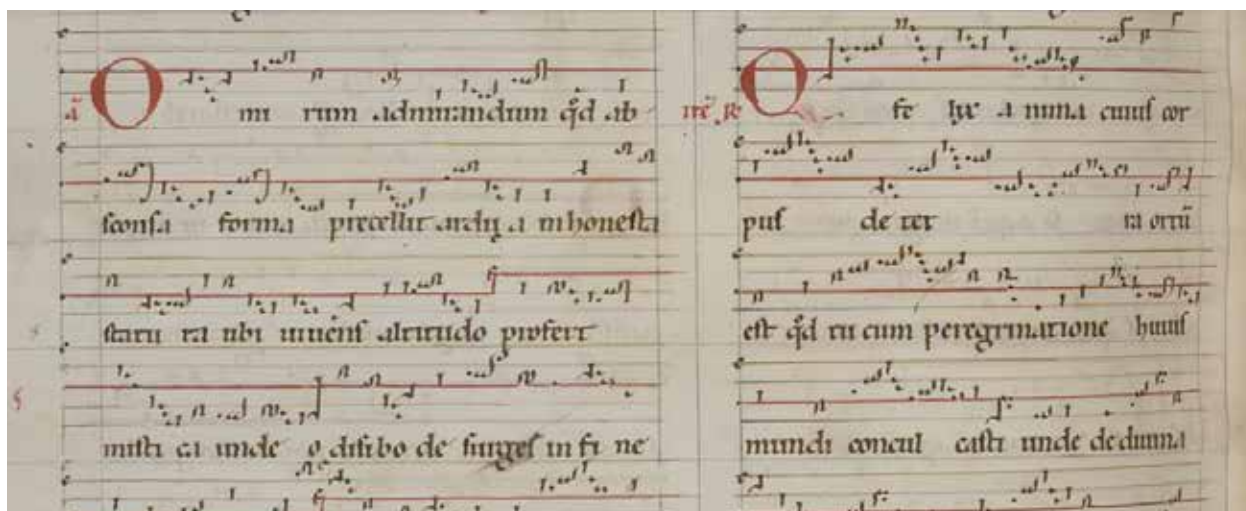 O mi rum admirandum qđ ab
sconsa forma precellit ardu a in honesta
statu ra ubi uiuens altitudo profert
misti ca unde o disibo de surges in fi ne
O fe lix a nima cuius cor
pus de ter ra ortū
est qđ tu cum peregrinatione huius
mundi concul casti unde de diuina